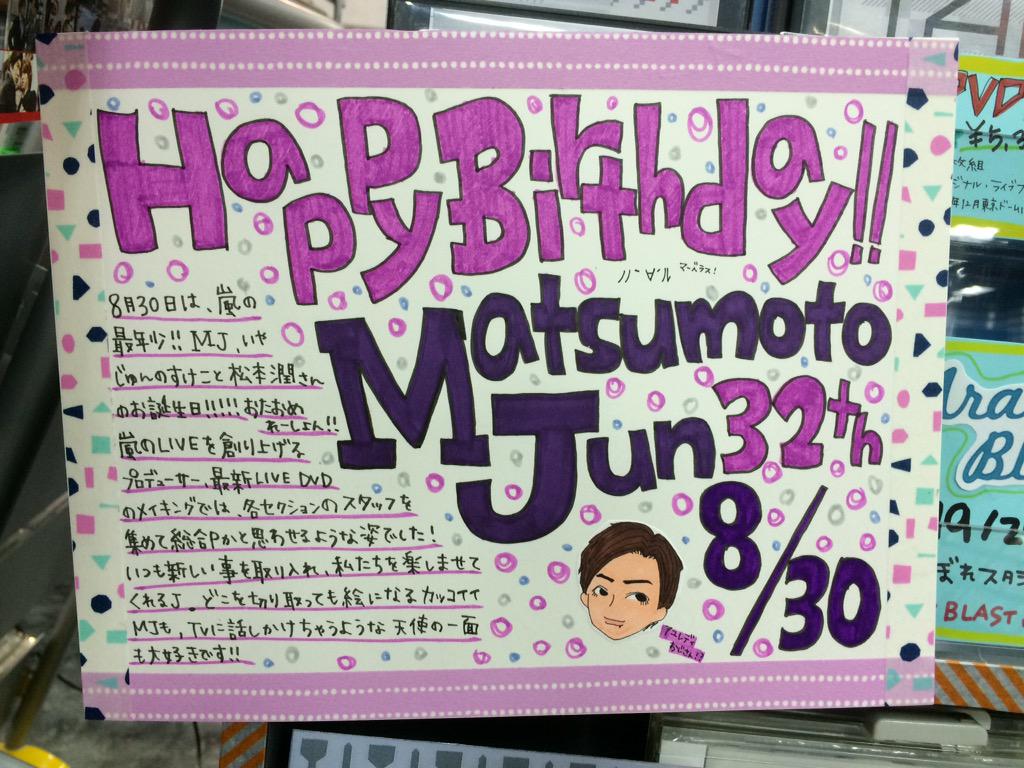 Happy Birthday!!
マーベラス!
Matsumoto
Jun 32th
8/30
8月30日は、嵐の
最年少!! MJ、いや
じゅんのすけこと松本潤さん
のお誕生日!!!!! おたおめ
れーしょん!!
嵐のLIVEを創り上げる
プロデューサー、最新LIVE DVD
のメイキングでは、各セクションのスタッフを
集めて総合Pかと思わせるような姿でした!
いつも新しい事を取り入れ、私たちを楽しませて
くれるJ。どこを切り取っても絵になるカッコイイ
MJも、TVに話しかけちゃうような天使の一面
も大好きです!!
DVD
枚組
ジナル・ライブフ
年12月東京ドーム
Ara
Bl
ぼれスタジ
BLAST